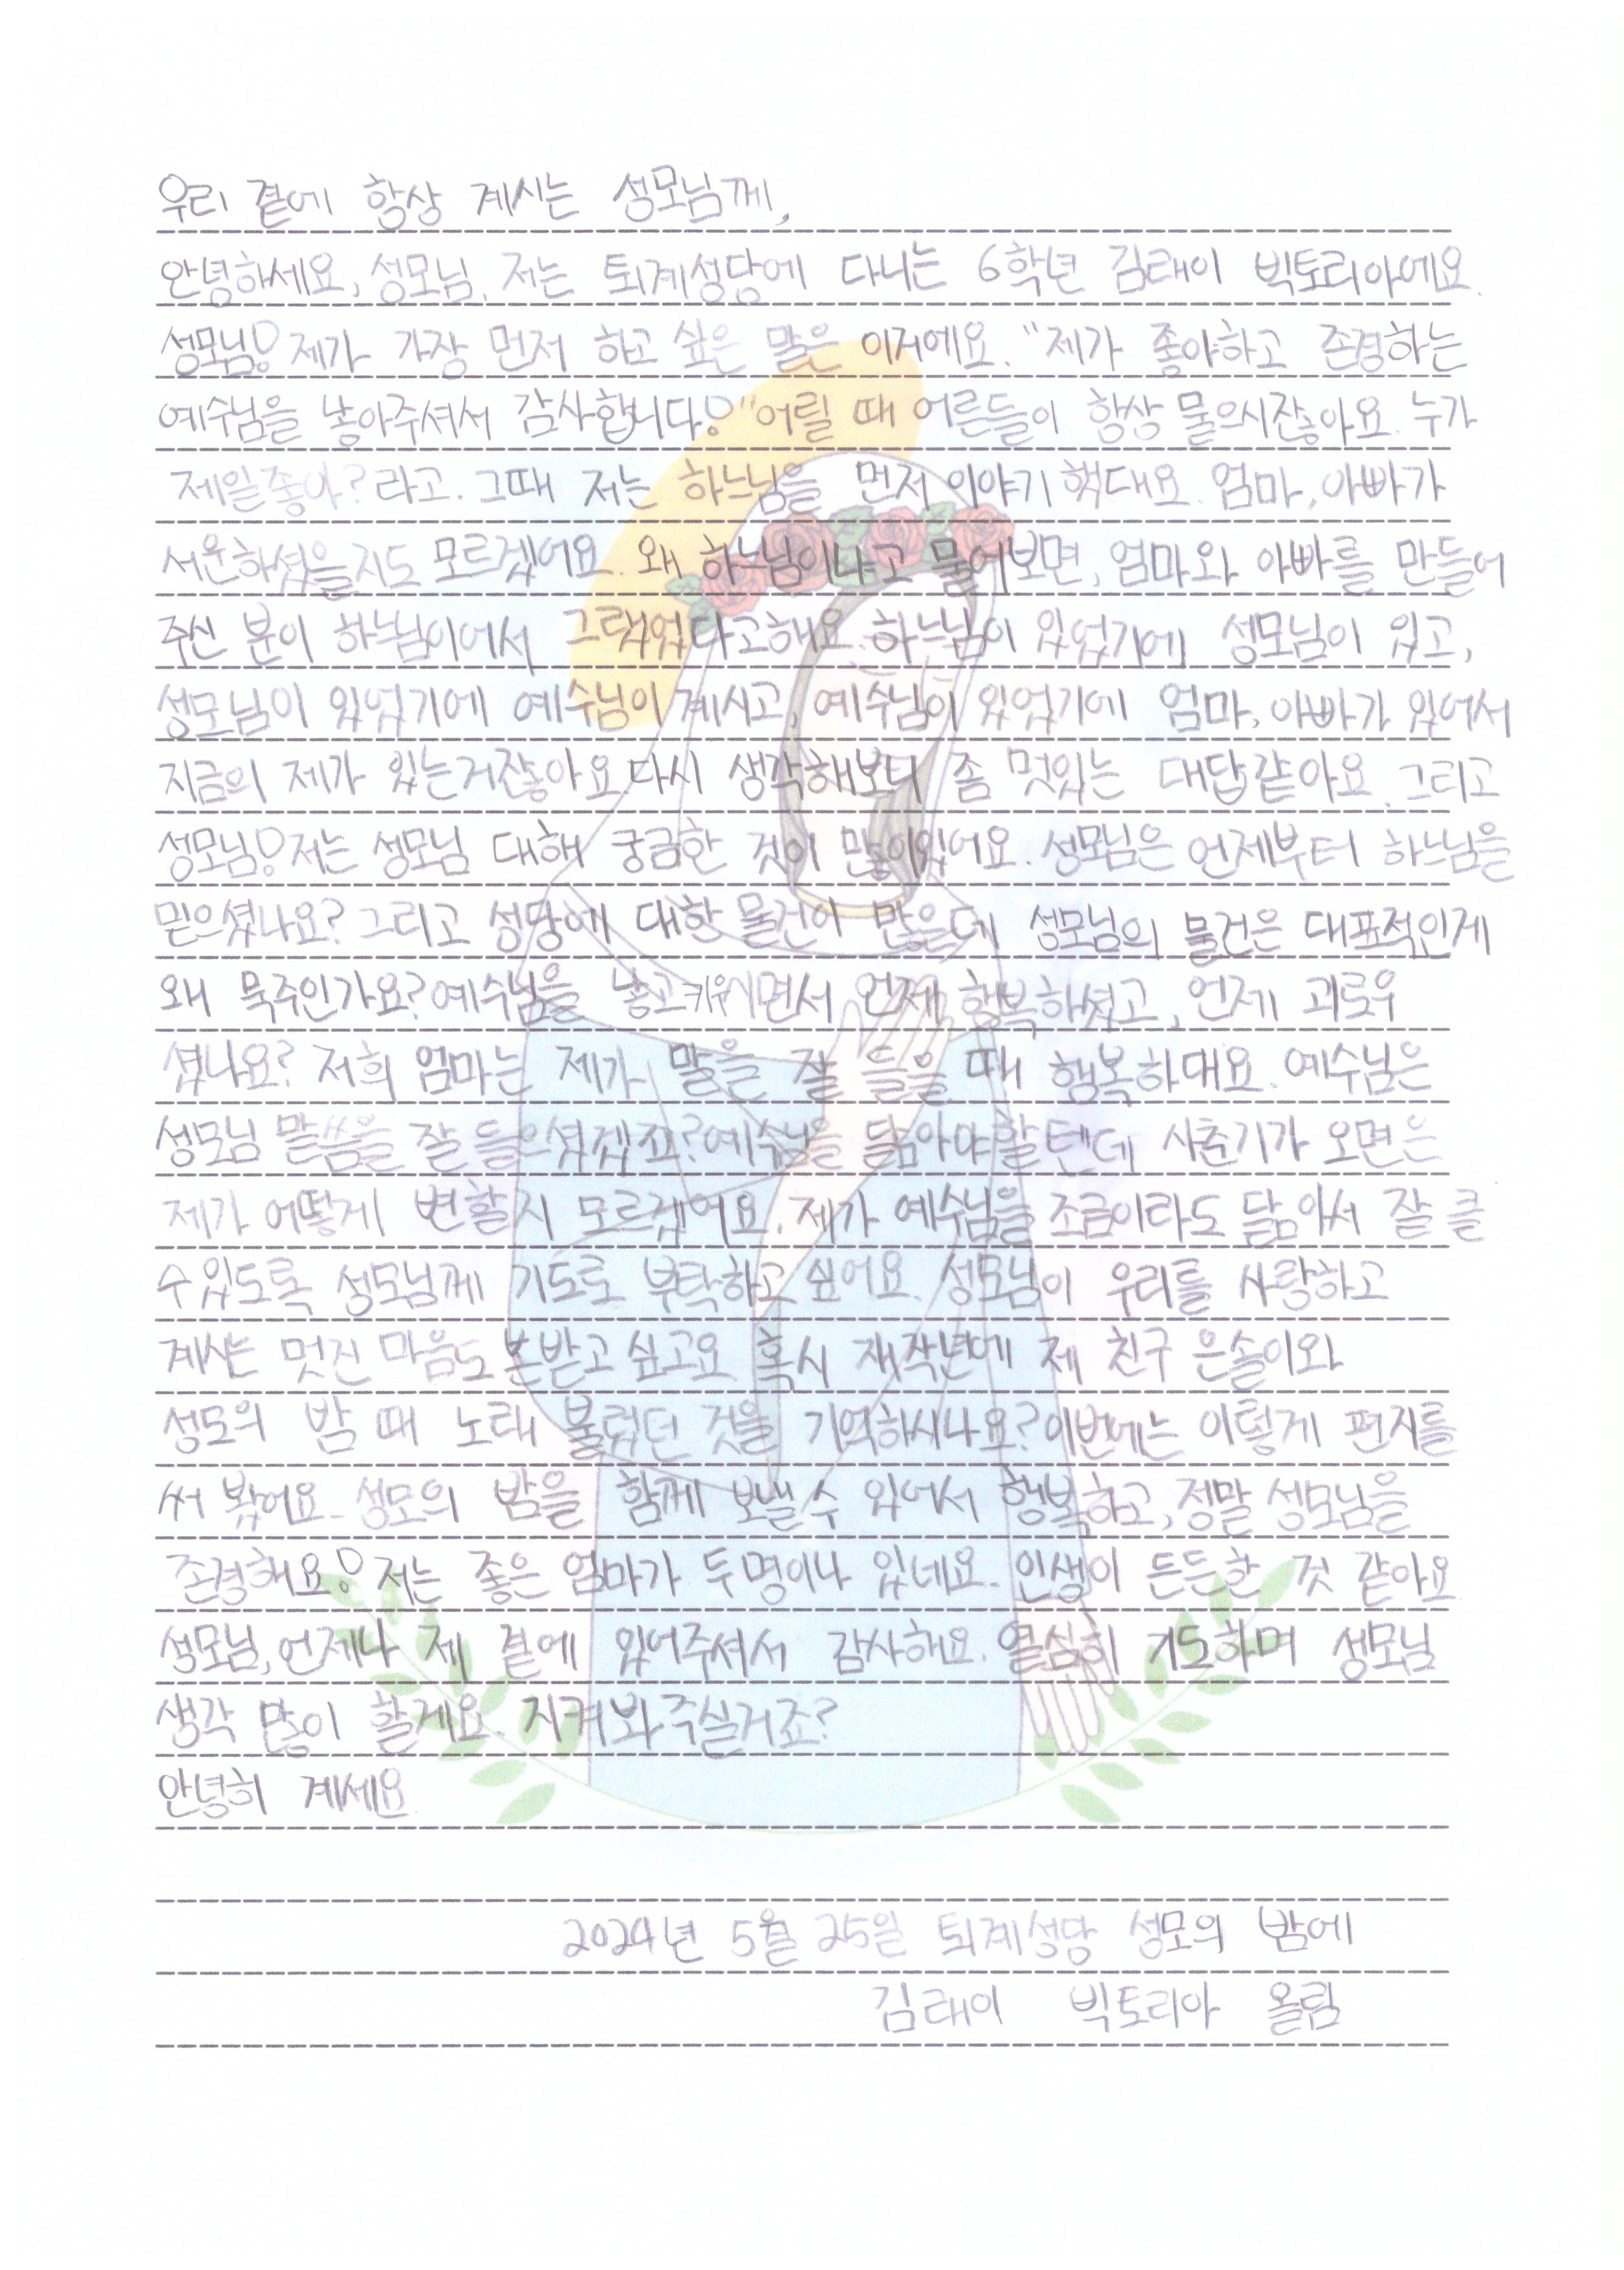 우리 곁에 항상 계시는 성모님께,
안녕하세요, 성모님. 저는 퇴계성당에 다니는 6학년 김태이 빅토리아에요.
성모님! 제가 가장 먼저 하고 싶은 말은 이거에요. "제가 좋아하고 존경하는
예수님을 낳아주셔서 감사합니다!" 어릴 때 어른들이 항상 물으시잖아요. 누가
제일 좋아? 라고. 그때 저는 하느님을 먼저 이야기 했대요. 엄마, 아빠가
서운하셨을지도 모르겠어요. 왜 하느님이냐고 물어보면, 엄마와 아빠를 만들어
주신 분이 하느님이어서 그랬었다고해요. 하느님이 있었기에 성모님이 있고,
성모님이 있었기에 예수님이 계시고, 예수님이 있었기에 엄마, 아빠가 있어서
지금의 제가 있는거잖아요. 다시 생각해보니 좀 멋있는 대답같아요. 그리고
성모님! 저는 성모님 대해 궁금한 것이 많이있어요. 성모님은 언제부터 하느님을
믿으셨나요? 그리고 성당에 대한 물건이 많은데 성모님의 물건은 대표적인게
왜 묵주인가요? 예수님을 낳고 키우시면서 언제 행복하셨고, 언제 괴로우
셨나요? 저희 엄마는 제가 말을 잘 들을 때 행복하대요. 예수님은
성모님 말씀을 잘 들으셨겠죠? 예수님을 닮아야할텐데 사춘기가 오면은
제가 어떻게 변할지 모르겠어요. 제가 예수님을 조금이라도 닮아서 잘 클
수 있도록 성모님께 기도로 부탁하고 싶어요. 성모님이 우리를 사랑하고
계시는 멋진 마음도 본받고 싶고요. 혹시 재작년에 제 친구 은솔이와
성모의 밤 때 노래 불렀던 것을 기억하시나요? 이번에는 이렇게 편지를
써 봤어요. 성모의 밤을 함께 보낼 수 있어서 행복하고, 정말 성모님을
존경해요! 저는 좋은 엄마가 두 명이나 있네요. 인생이 든든한 것 같아요.
성모님, 언제나 제 곁에 있어주셔서 감사해요. 열심히 기도하며 성모님
생각 많이 할게요. 지켜봐 주실거죠?
안녕히 계세요
2024년 5월 25일 퇴계성당 성모의 밤에
김태이 빅토리아 올림